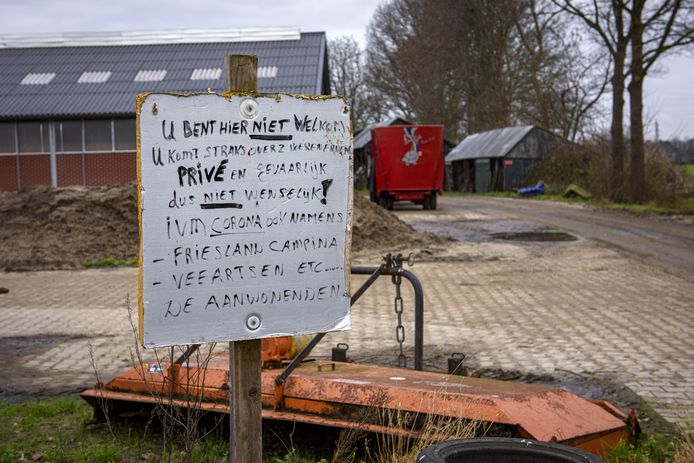 U BENT HIER NIET WELKOM
U KOMT STRAKS OVER 2 BOERENERVEN
PRIVÉ EN GEVAARLIJK
DUS NIET WENSELIJK!
IVM CORONA OOK NAMENS
- FRIESLAND CAMPINA
- VEEARTSEN ETC.....
DE AANWONENDEN